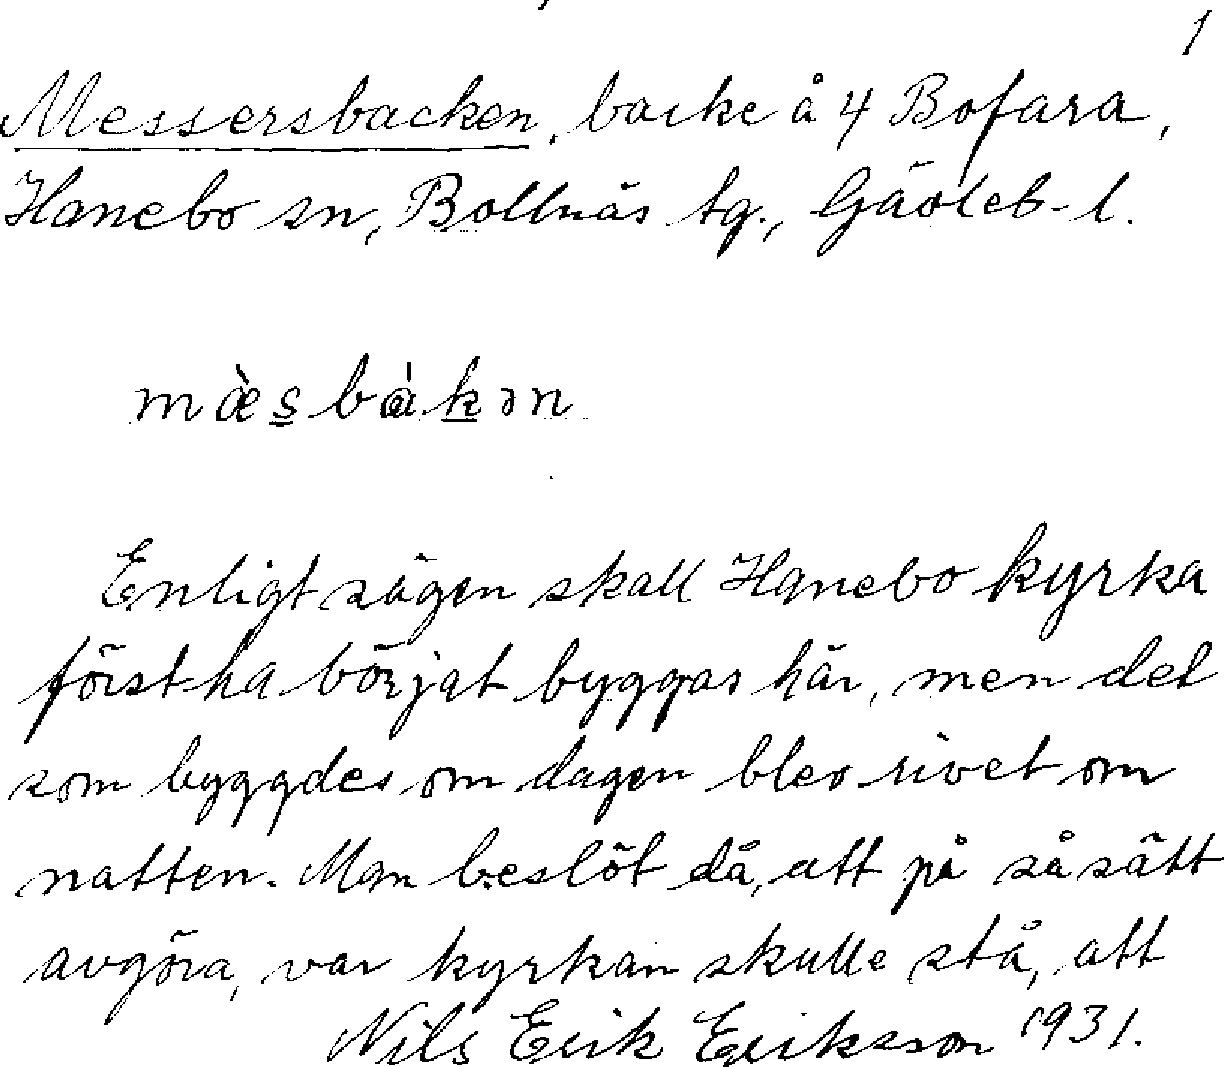 1
Messersbacken, backe å 4 Bofara,
Hanebo sn, Bollnäs tg., Gävleb. l.
mæ̀s̲bàk̲ən
Enligt sägen skall Hanebo kyrka
först ha börjat byggas här, men det
som byggdes om dagen blev rivet om
natten. Man beslöt då, att på så sätt
avgöra, var kyrkan skulle stå, att
Nils Erik Eriksson 1931.